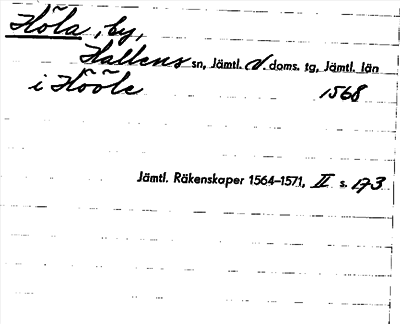 Höla, by,
Hallens sn, Jämtl. v. doms. tg, Jämtl. län
i Hööle 1568
Jämtl. Räkenskaper 1564–1571, II s. 173